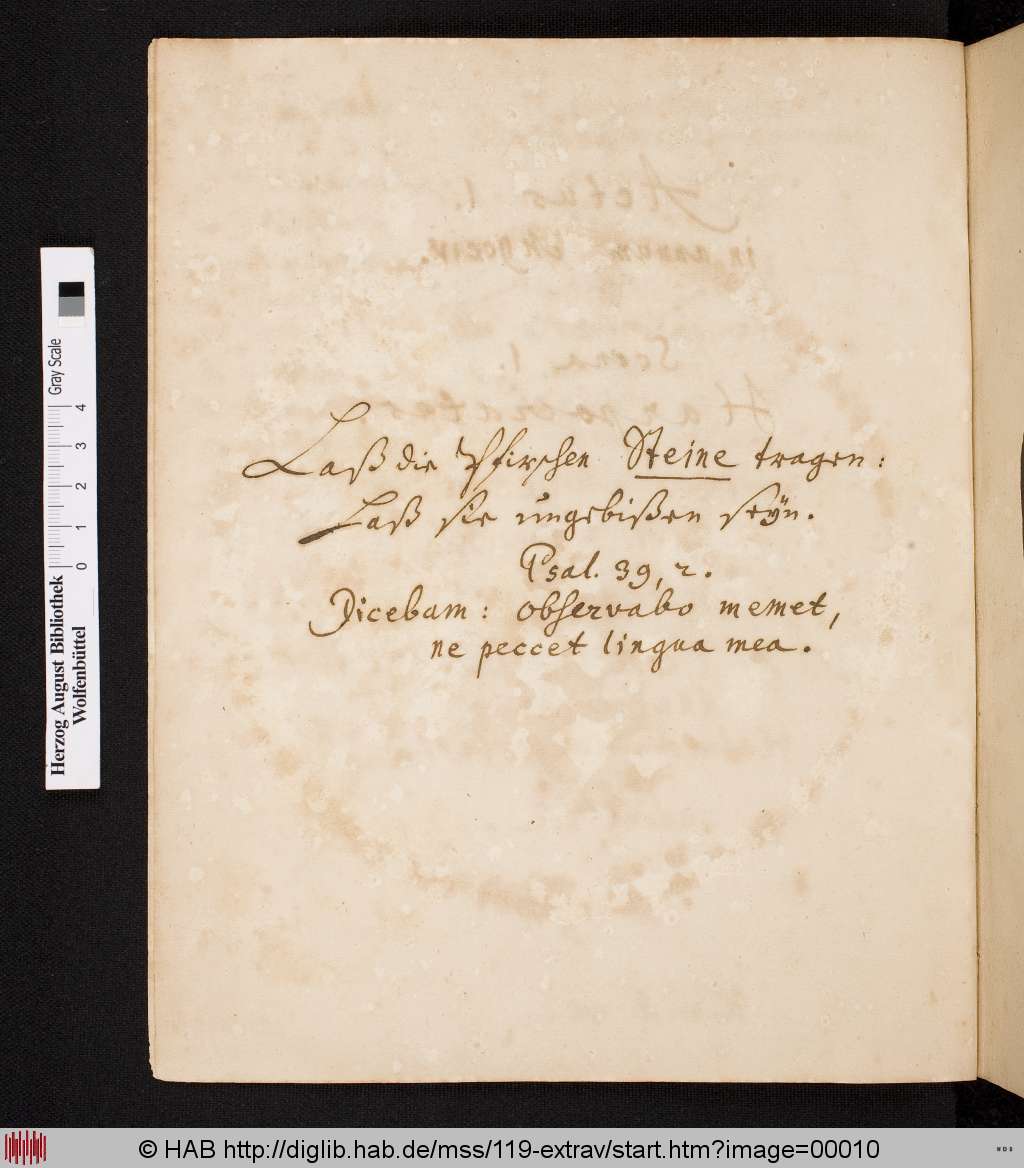 Laß die Pfirschen Steine tragen:
Laß sie ungebißen seÿn.
Psal. 39, 2.
Dicebam: observabo memet,
ne peccet lingua mea.
Herzog August Bibliothek
Wolfenbüttel
0 1 2 3 4
Gray Scale
© HAB http://diglib.hab.de/mss/119-extrav/start.htm?image=00010